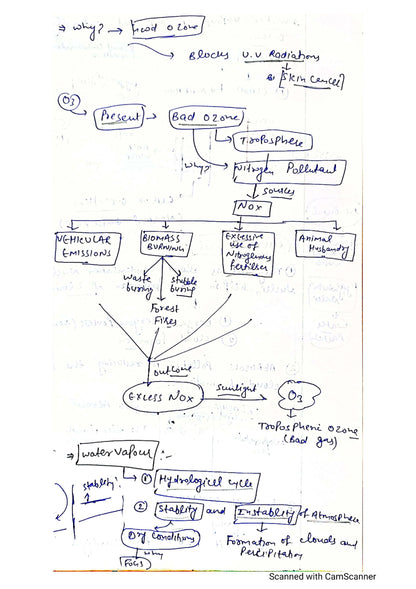 ⇒ Why? → Good Ozone
→ Blocks U.V Radiations
[Skin Cancer]
O3
Present → Bad Ozone
→ Troposphere
Why? Nitrogen Pollutant
Sources
NOx
VEHICULAR EMISSIONS
BIOMASS BURNING
Excessive use of Nitrogenous fertiliser
Animal Husbandry
Waste burning
Stubble burning
Forest Fires
outcome
Excess NOx sunlight → O3
Tropospheric Ozone
(Bad gas)
⇒ Water Vapour :-
→ ① Hydrological Cycle
Stability
② Stability and Instability of Atmosphere
Dry Conditions
Formation of clouds and
Percipitation
Why
FOGS
Scanned with CamScanner